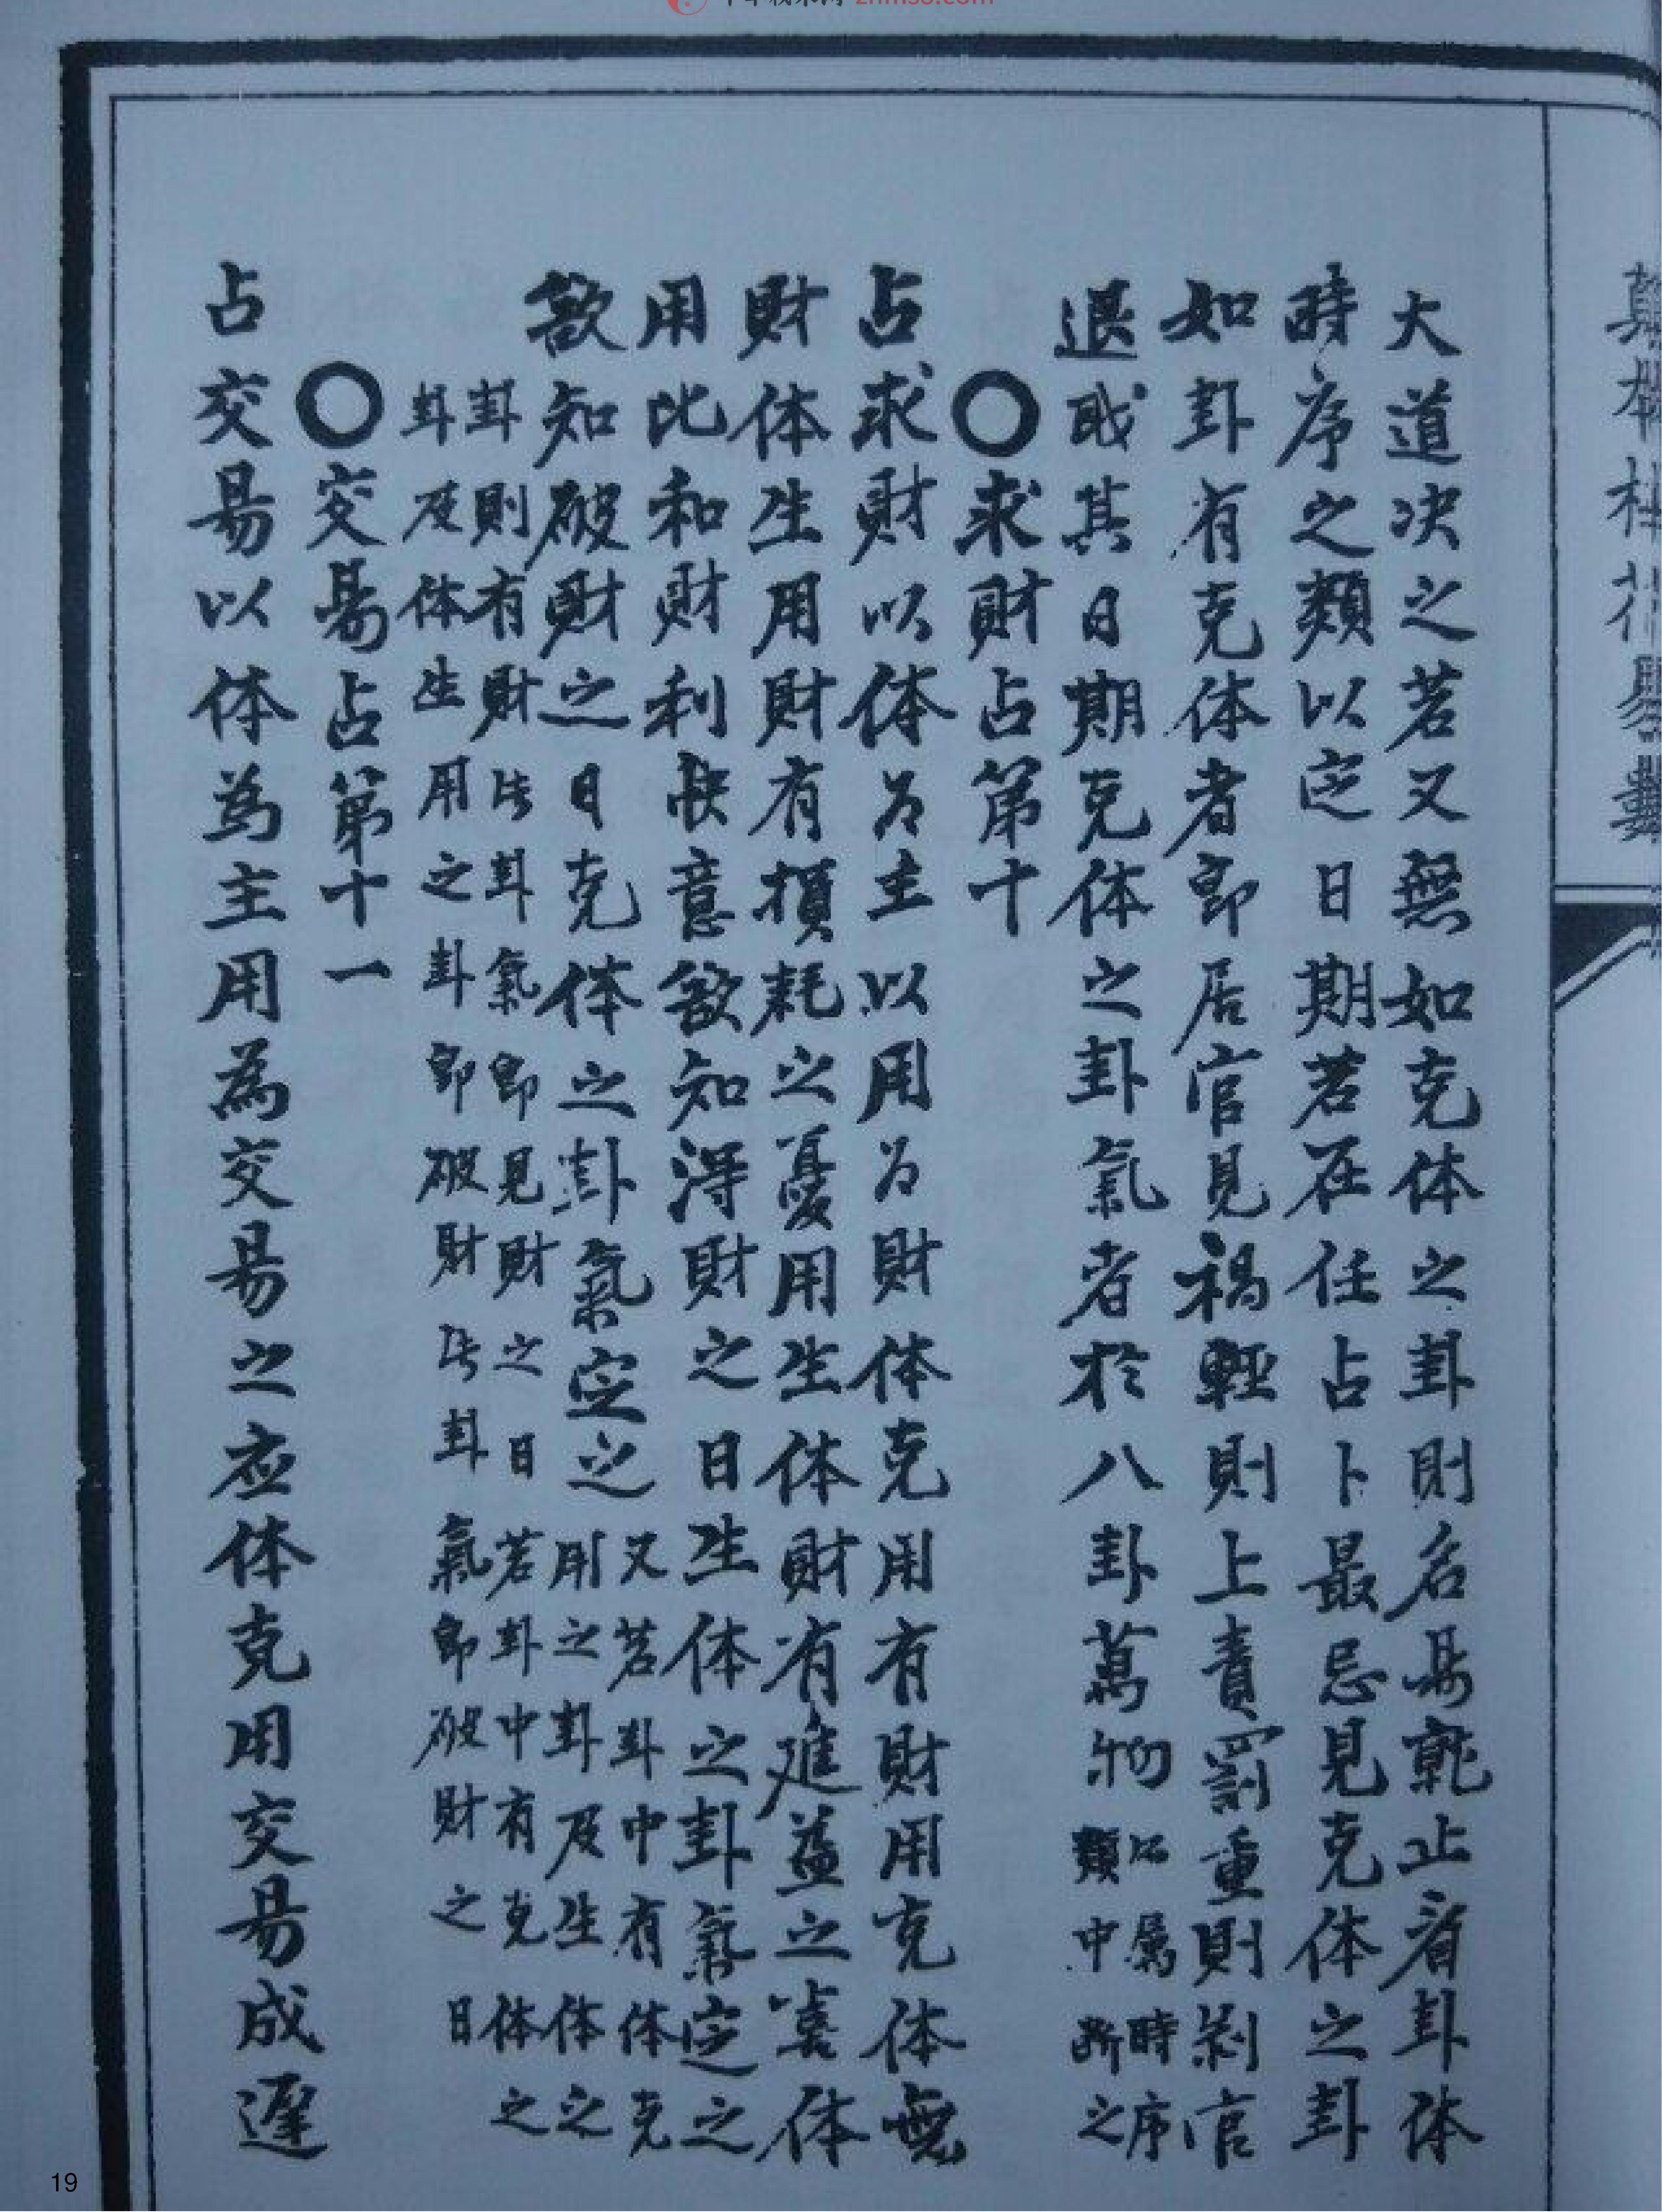 大道决之若又無如克体之卦則名易乾止看卦体
時序之類以定日期若在任占卜最忌見克体之卦
如卦有克体者即居官見禍輕則上責罰重則剝官
退戝其日期克体之卦氣者於八卦萬物
所属時序
類中断之
〇求財占第十
占求財以体为主以用为財体克用有財用克体無
財体生用財有損耗之憂用生体財有進益之喜体
用比和財利快意欲知得財之日生体之卦氣定之
欲知破財之日克体之卦氣定之
又若卦中有体克
用之卦及生体之
卦則有財此卦氣即見財之日若卦中有克体之
卦及体生用之卦即破財此卦氣即破財之日
〇交易占第十一
占交易以体為主用為交易之应体克用交易成遲
19